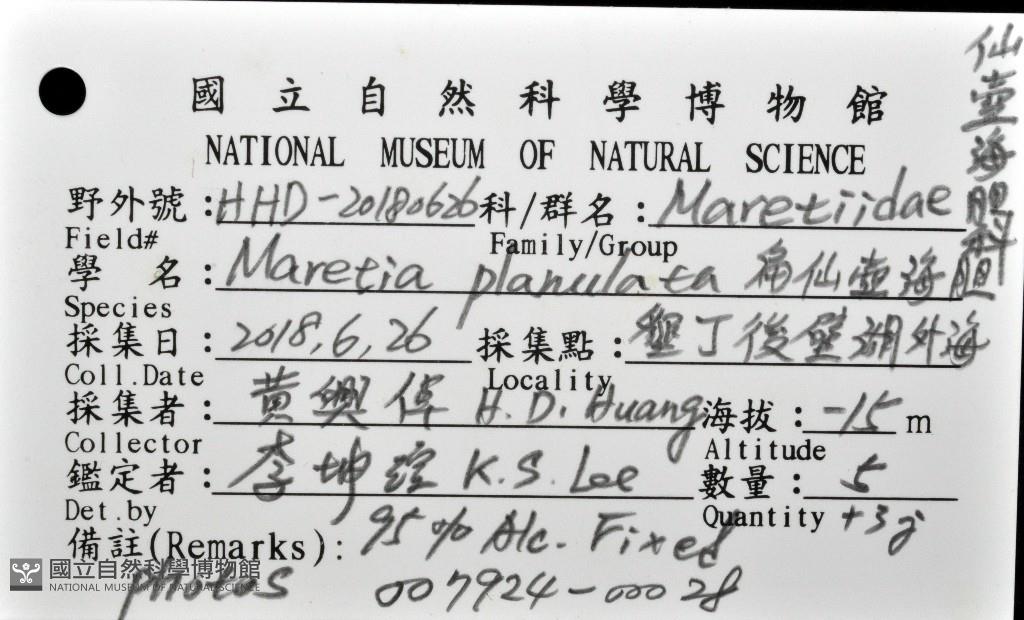 國立自然科學博物館
NATIONAL MUSEUM OF NATURAL SCIENCE
仙壺海膽科
野外號：HHD-20180626 科/群名：Maretiidae
Field# Family/Group
學 名：Maretia planulata 扁仙壺海膽
Species
採集日：2018,6,26 採集點：墾丁後壁湖外海
Coll.Date Locality
採集者：黃興倬 H.D.Huang 海拔：-15 m
Collector Altitude
鑑定者：李坤瑄 K.S.Lee 數量：5
Det.by Quantity +3j
備註(Remarks)：95% Alc. Fixed
photos 007924-00028
國立自然科學博物館
NATIONAL MUSEUM OF NATURAL SCIENCE